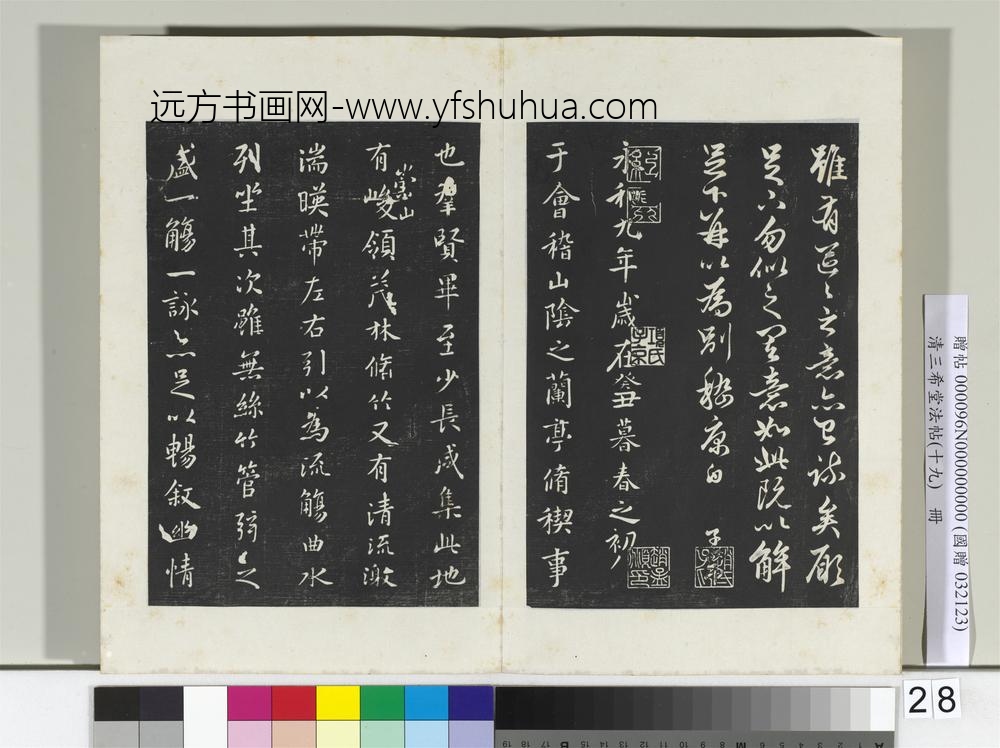 远方书画网-www.yfshuhua.com
雖有區〻之意亦已疎矣願
足下勿似之其意如此既以解
足下并以為別嵇康白
子
永和九年歲在癸丑暮春之初
于會稽山陰之蘭亭脩稧事
也羣賢畢至少長咸集此地
有崇山峻領茂林脩竹又有清流激
湍暎帶左右引以為流觴曲水
列坐其次雖無絲竹管弦之
盛一觴一詠亦足以暢叙幽情
項氏子京
趙孟頫印
趙氏子昂
贈帖 000096N000000000 (國贈 032123)
清三希堂法帖(十九) 冊
28